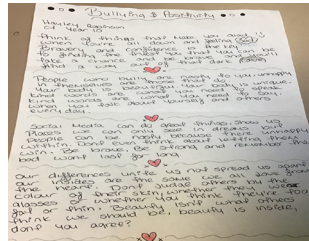 Bullying & Positivity
Hayley Robinson
Year 10
Think of things that make you glad
when you're all down and feeling sad
Bravery and confidence is the key
to finding the finest you that you can be
Take a chance and be brave and you'll
find a way out of the dark cave
People who bully are nasty to you unhappy
in themselves are those who do
Your body is beautiful your body is unique
kind words are what you need to speak
kind words are what you need to say
when you talk about yourself and others
every day
Social Media can do great things, show us
places we can only see in dreams but
people can be nasty because they're unhappy
within Don't even think about letting them
win. Be brave, Be strong and remember the
bad won't last for long
Our differences unite us not spread us apart
our insides are the same we all love from
the heart. Don't judge others by the
colour of their skin, whether they wear
glasses or whether you think they're too
fat or thin. Beauty isn't what others
think we should be, beauty is inside,
don't you agree?